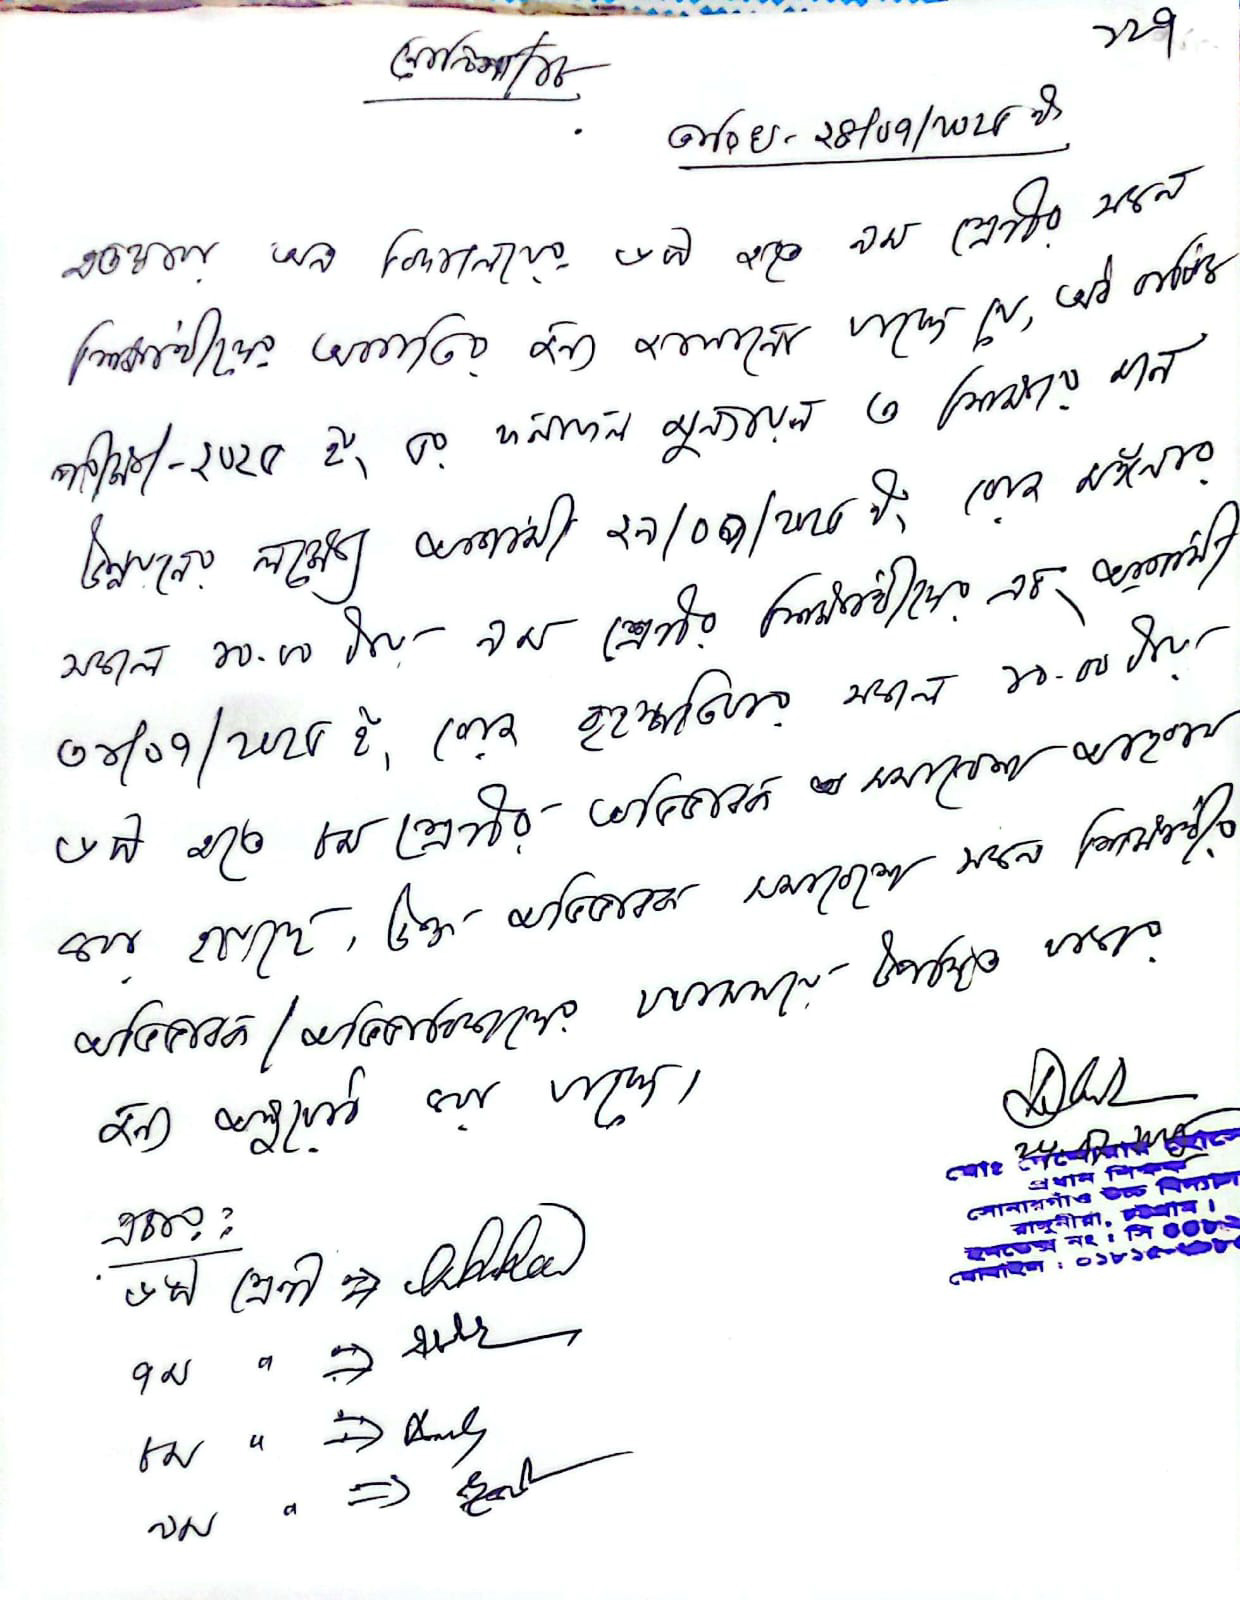 ১২৭
নোটিশ
তারিখ- ২৪/০৭/২০২৫ ইং
এতদ্বারা অত্র বিদ্যালয়ের ৬ষ্ঠ হতে ৯ম শ্রেণীর সকল
শিক্ষার্থীদের অবগতির জন্য জানানো যাচ্ছে যে, অর্ধ বার্ষিক
পরীক্ষা-২০২৫ ইং এর ফলাফল মূল্যায়ন ও শিক্ষার মান
উন্নয়নের লক্ষ্যে আগামী ২৯/০৭/২০২৫ ইং রোজ মঙ্গলবার
সকাল ১০.০০ টায় ৯ম শ্রেণীর শিক্ষার্থীদের এবং আগামী
৩১/০৭/২০২৫ ইং রোজ বৃহস্পতিবার সকাল ১০.০০ টায়
৬ষ্ঠ হতে ৮ম শ্রেণীর অভিভাবক সমাবেশ আহবান
করা হয়েছে। উক্ত অভিভাবক সমাবেশে সকল শিক্ষার্থীর
অভিভাবক/অভিভাবিকাদের যথাসময়ে উপস্থিত থাকার
জন্য অনুরোধ করা যাচ্ছে।
মোঃ
প্রধান শিক্ষক
সোনারগাঁও উচ্চ বিদ্যাল
রাঙ্গুনীয়া, চট্টগ্রাম।
ইনডেক্স নং : সি
মোবাইল : ০১৮১৫-
প্রচার :
৬ষ্ঠ শ্রেণী ⇒
৭ম " ⇒
৮ম " ⇒
৯ম " ⇒